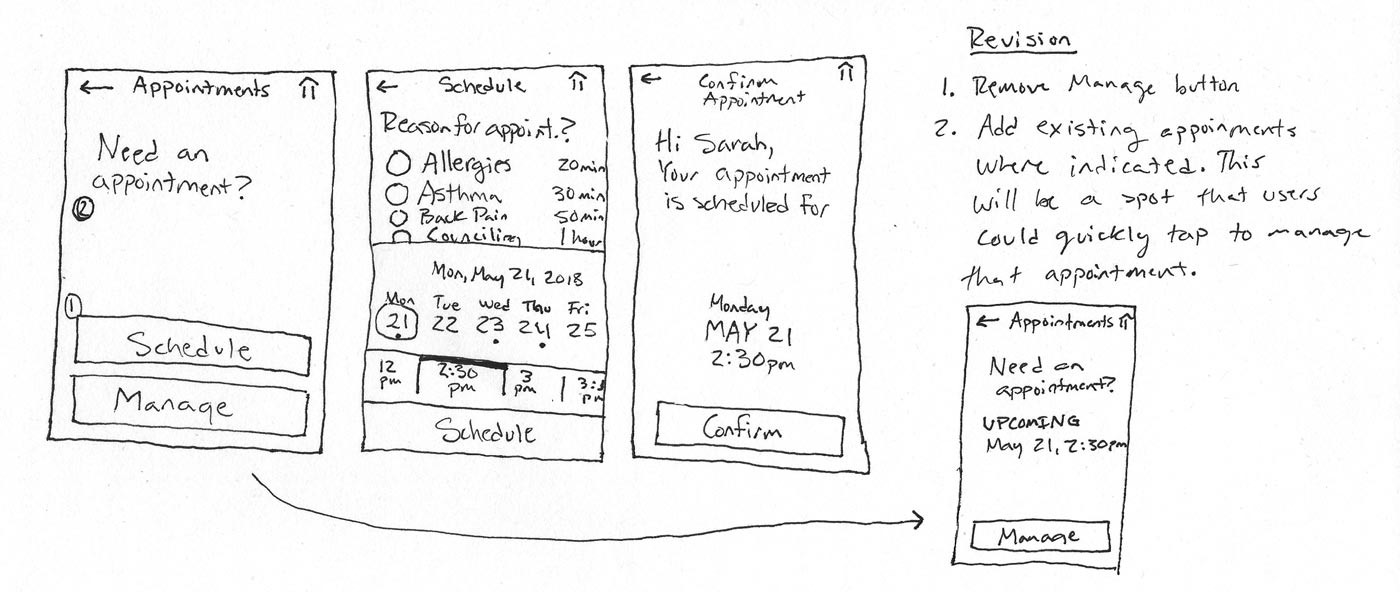 Appointments
Need an
appointment?
2
1
Schedule
Manage
Schedule
Reason for appoint.?
Allergies 20min
Asthma 30min
Back Pain 50min
Counciling 1 hour
Mon, May 21, 2018
Mon Tue Wed Thu Fri
21 22 23 24 25
12 pm 2:30 pm 3 pm 3:3 pm
Schedule
Confirm
Appointment
Hi Sarah,
Your appointment
is scheduled for
Monday
MAY 21
2:30pm
Confirm
Revision
1. Remove Manage button
2. Add existing appoinments
where indicated. This
will be a spot that users
could quickly tap to manage
that appointment.
Appointments
Need an
appointment?
UPCOMING
May 21, 2:30pm
Manage